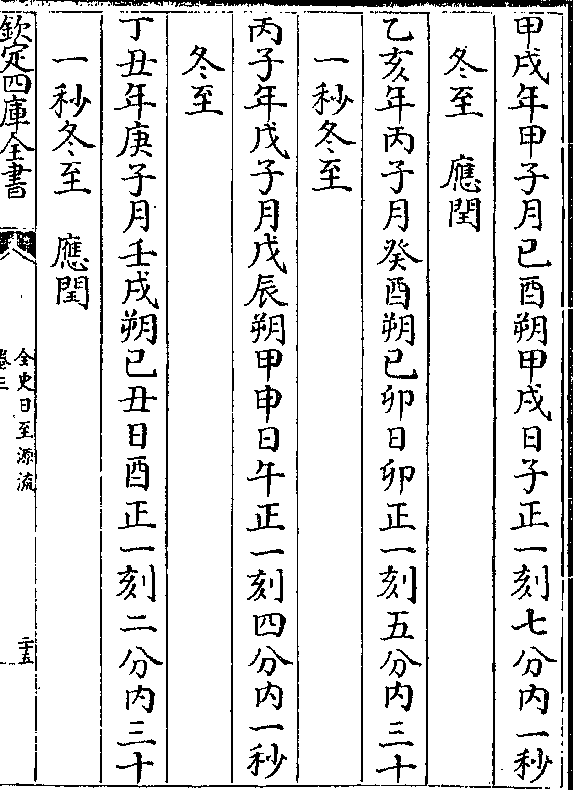 甲戌年甲子月已酉朔甲戌日子正一刻七分内一秒
冬至　應閏
乙亥年丙子月癸酉朔已卯日卯正一刻五分内三十
一秒冬至
丙子年戊子月戊辰朔甲申日午正一刻四分内一秒
冬至
丁丑年庚子月壬戌朔已丑日酉正一刻二分内三十
一秒冬至　應閏
欽定四庫全書
全史日至源流
卷三
二十五